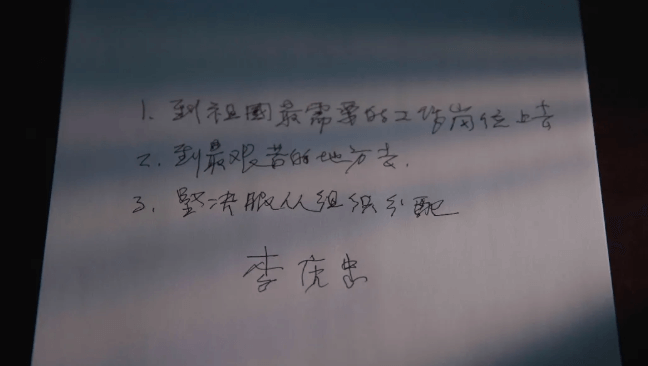 1. 到祖國最需要的工作岗位上去
2. 到最艰苦的地方去.
3. 坚决服从组织分配
李虎忠